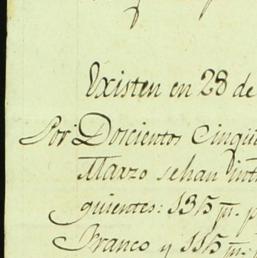 Existen en 28 de
Por Doscientos Cinqü
Marzo se han int
guientes: 135 m. p
Branco y 115 m.